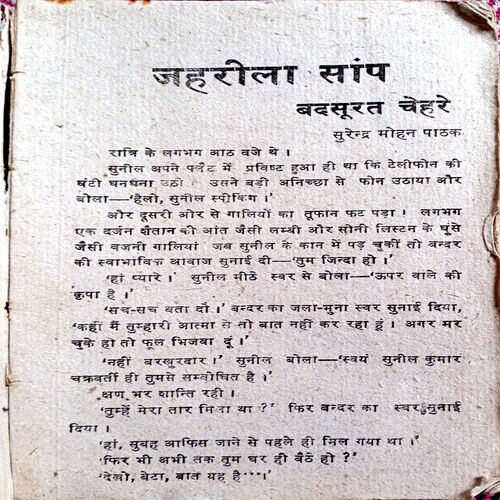 जहरीला सांप
बदसूरत चेहरे
सुरेन्द्र मोहन पाठक
रात्रि के लगभग आठ बजे थे ।
सुनील अपने फ्लैट में प्रविष्ट हुआ ही था कि टेलीफोन की
घंटी घनघना उठी । उसने बड़ी अनिच्छा से फोन उठाया और
बोला—'हैलो, सुनील स्पीकिंग ।'
और दूसरी ओर से गालियों का तूफान फट पड़ा ! लगभग
एक दर्जन शैतान की आंत जैसी लम्बी और सोनी लिस्टन के घूंसे
जैसी वजनी गालियां जब सुनील के कान में पड़ चुकीं तो बन्दर
की स्वाभाविक आवाज सुनाई दी—'तुम जिन्दा हो ।'
'हां प्यारे ।' सुनील मीठे स्वर से बोला—'ऊपर वाले की
कृपा है ।'
'सच-सच बता दो ।' बन्दर का जला-भुना स्वर सुनाई दिया,
'कहीं मैं तुम्हारी आत्मा से तो बात नहीं कर रहा हूं । अगर मर
चुके हो तो फूल भिजवा दूं ।'
'नहीं बरखुरदार ।' सुनील बोला—'स्वयं सुनील कुमार
चक्रवर्ती ही तुमसे सम्बोधित है ।'
क्षण भर शान्ति रही ।
'तुम्हें मेरा तार मिला था ?' फिर बन्दर का स्वर सुनाई
दिया ।
'हां, सुबह आफिस जाने से पहले ही मिल गया था ।'
'फिर भी अभी तक तुम घर ही बैठे हो ?'
'देखो, बेटा, बात यह है....।'